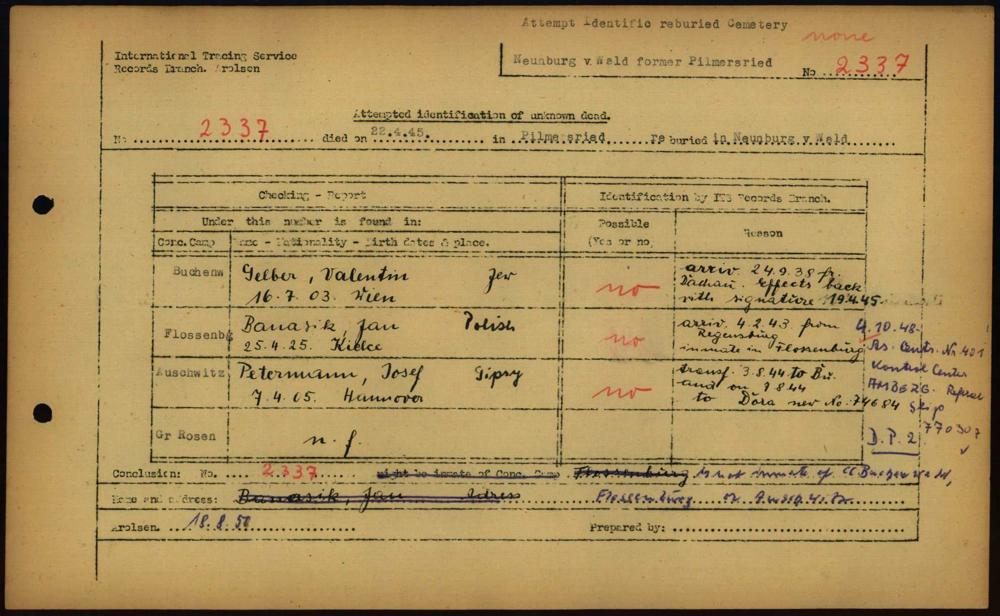 Attempt Identific reburied Cemetery
none
International Tracing Service
Records Branch. Arolsen
Neunburg v. Wald former Pilmersried
No 2337
Attempted identification of unknown dead.
No 2337 died on 22.4.45. in Pilmersried reburied in Neunburg v. Wald
Checking - Report
Identification by ITS Records Branch.
Under this number is found in:
Possible
(Yes or no,
Reason
Conc. Camp
Name - Nationality - Birth dates & place.
Buchenw
Gelber, Valentin Jew
16.7.03. Wien
no
arriv. 24.9.38 fr.
Dachau. Effects back
with signature 19.4.45
Flossenbg
Banasik, Jan Polish
25.4.25. Kielce
no
arriv. 4.2.43. from
Regensburg
inmate in Flossenburg
4.10.48.
Nr 401
Kontrol Center
AMBERG. Referral
Slip
770307
D.P.2
Auschwitz
Petermann, Josef Gipsy
7.4.05. Hannover
no
transf. 3.8.44 to Bu.
and on 8.44
to Dora new No: 74684
Gr Rosen
n. f.
Conclusion: No. 2337 might be inmate of Conc. Camp Flossenburg is not inmate of CC Buchenwald,
Name and address: Banasik, Jan Adress Flossenburg or Auschwitz.
Arolsen. 18.8.50
Prepared by: